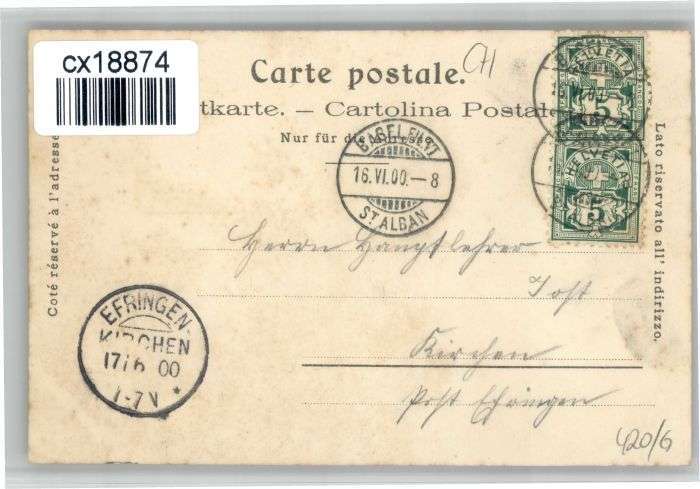 cx18874
CH
Carte postale.
tkarte. — Cartolina Postale
Nur für die Adresse
Coté réservé à l'adresse
Lato riservato all' indirizzo.
HELVETIA
5
HELVETIA
5
16.VI.00.–8
ST. ALBAN
Herrn Hauptlehrer
Jost
Kirchen
Post Efringen
EFRINGEN-
KIRCHEN
17/6 00
1-7 V
420/6